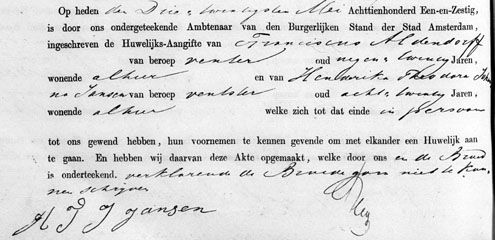 Op heden den Drie & twintigsten Mei Achttienhonderd Een-en-Zestig,
is door ons ondergeteekende Ambtenaar van den Burgerlijken Stand der Stad Amsterdam,
ingeschreven de Huwelijks-Aangifte van Franciscus Aldendorff
van beroep venter oud negen & twintig Jaren,
wonende alhier en van Hendrika Theodora Joha
na Jansen van beroep ventster oud acht & twintig Jaren,
wonende alhier welke zich tot dat einde in persoon
tot ons gewend hebben, hun voornemen te kennen gevende om met elkander een Huwelijk aan
te gaan. En hebben wij daarvan deze Akte opgemaakt, welke door ons en de Bruid
is onderteekend. verklarende de Bruidegom niet te kun
nen schrijven
H J J jansen